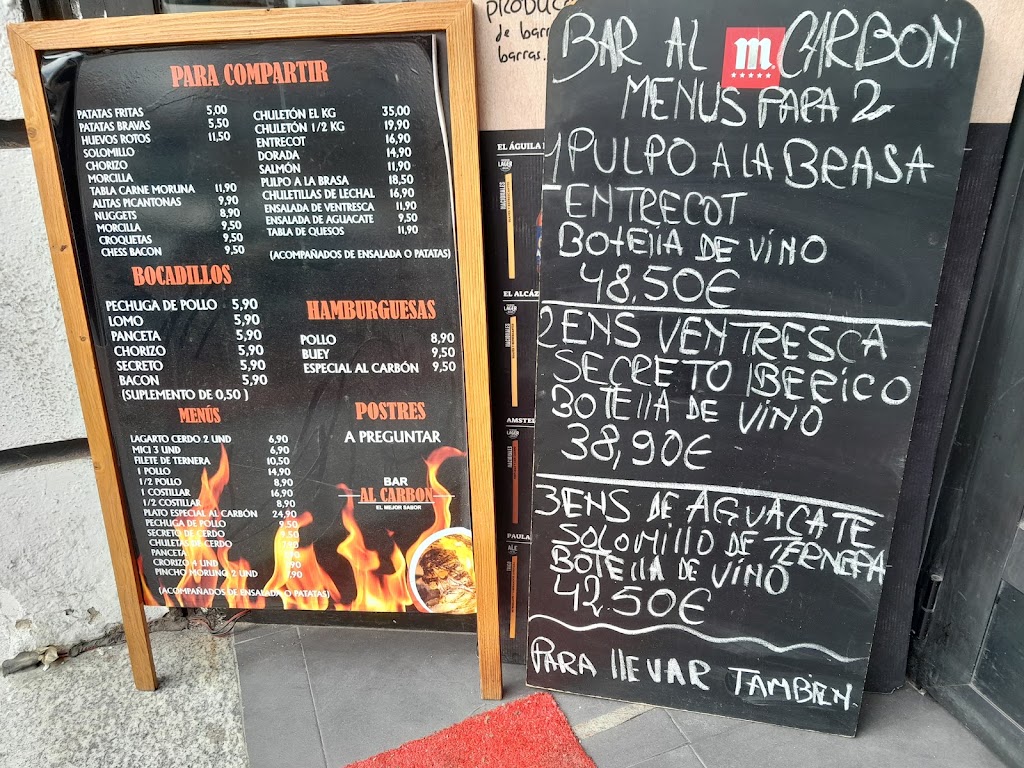 PARA COMPARTIR
PATATAS FRITAS 5,00
PATATAS BRAVAS 5,50
HUEVOS ROTOS 11,50
SOLOMILLO
CHORIZO
MORCILLA
TABLA CARNE MORUNA 11,90
ALITAS PICANTONAS 9,90
NUGGETS 8,90
MORCILLA 9,50
CROQUETAS 9,50
CHESS BACON 9,50
CHULETÓN EL KG 35,00
CHULETÓN 1/2 KG 19,90
ENTRECOT 16,90
DORADA 14,90
SALMÓN 11,90
PULPO A LA BRASA 18,50
CHULETILLAS DE LECHAL 16,90
ENSALADA DE VENTRESCA 11,90
ENSALADA DE AGUACATE 9,50
TABLA DE QUESOS 11,90
(ACOMPAÑADOS DE ENSALADA O PATATAS)
BOCADILLOS
PECHUGA DE POLLO 5,90
LOMO 5,90
PANCETA 5,90
CHORIZO 5,90
SECRETO 5,90
BACON 5,90
(SUPLEMENTO DE 0,50 )
HAMBURGUESAS
POLLO 8,90
BUEY 9,50
ESPECIAL AL CARBÓN 9,50
MENÚS
LAGARTO CERDO 2 UND 6,90
MICI 3 UND 6,90
FILETE DE TERNERA 10,50
1 POLLO 14,90
1/2 POLLO 8,90
1 COSTILLAR 16,90
1/2 COSTILLAR 8,90
PLATO ESPECIAL AL CARBÓN 24,90
PECHUGA DE POLLO 9,50
SECRETO DE CERDO 9,50
CHULETAS DE CERDO
PANCETA
CRORIZO 4 UND
PINCHO MORUNO 2 UND
(ACOMPAÑADOS DE ENSALADA O PATATAS)
POSTRES
A PREGUNTAR
BAR
AL CARBON
EL MEJOR SABOR
de barr
barras.
EL ÁGUILA
EL ALCÁZ
AMSTEL
PAULA
BAR AL m CARBON
MENUS PARA 2
1 PULPO A LA BRASA
ENTRECOT
BOTELLA DE VINO
48,50€
2 ENS VENTRESCA
SECRETO IBERICO
BOTELLA DE VINO
38,90€
3 ENS DE AGUACATE
SOLOMILLO DE TERNERA
BOTELLA DE VINO
42.50€
PARA LLEVAR TAMBIEN